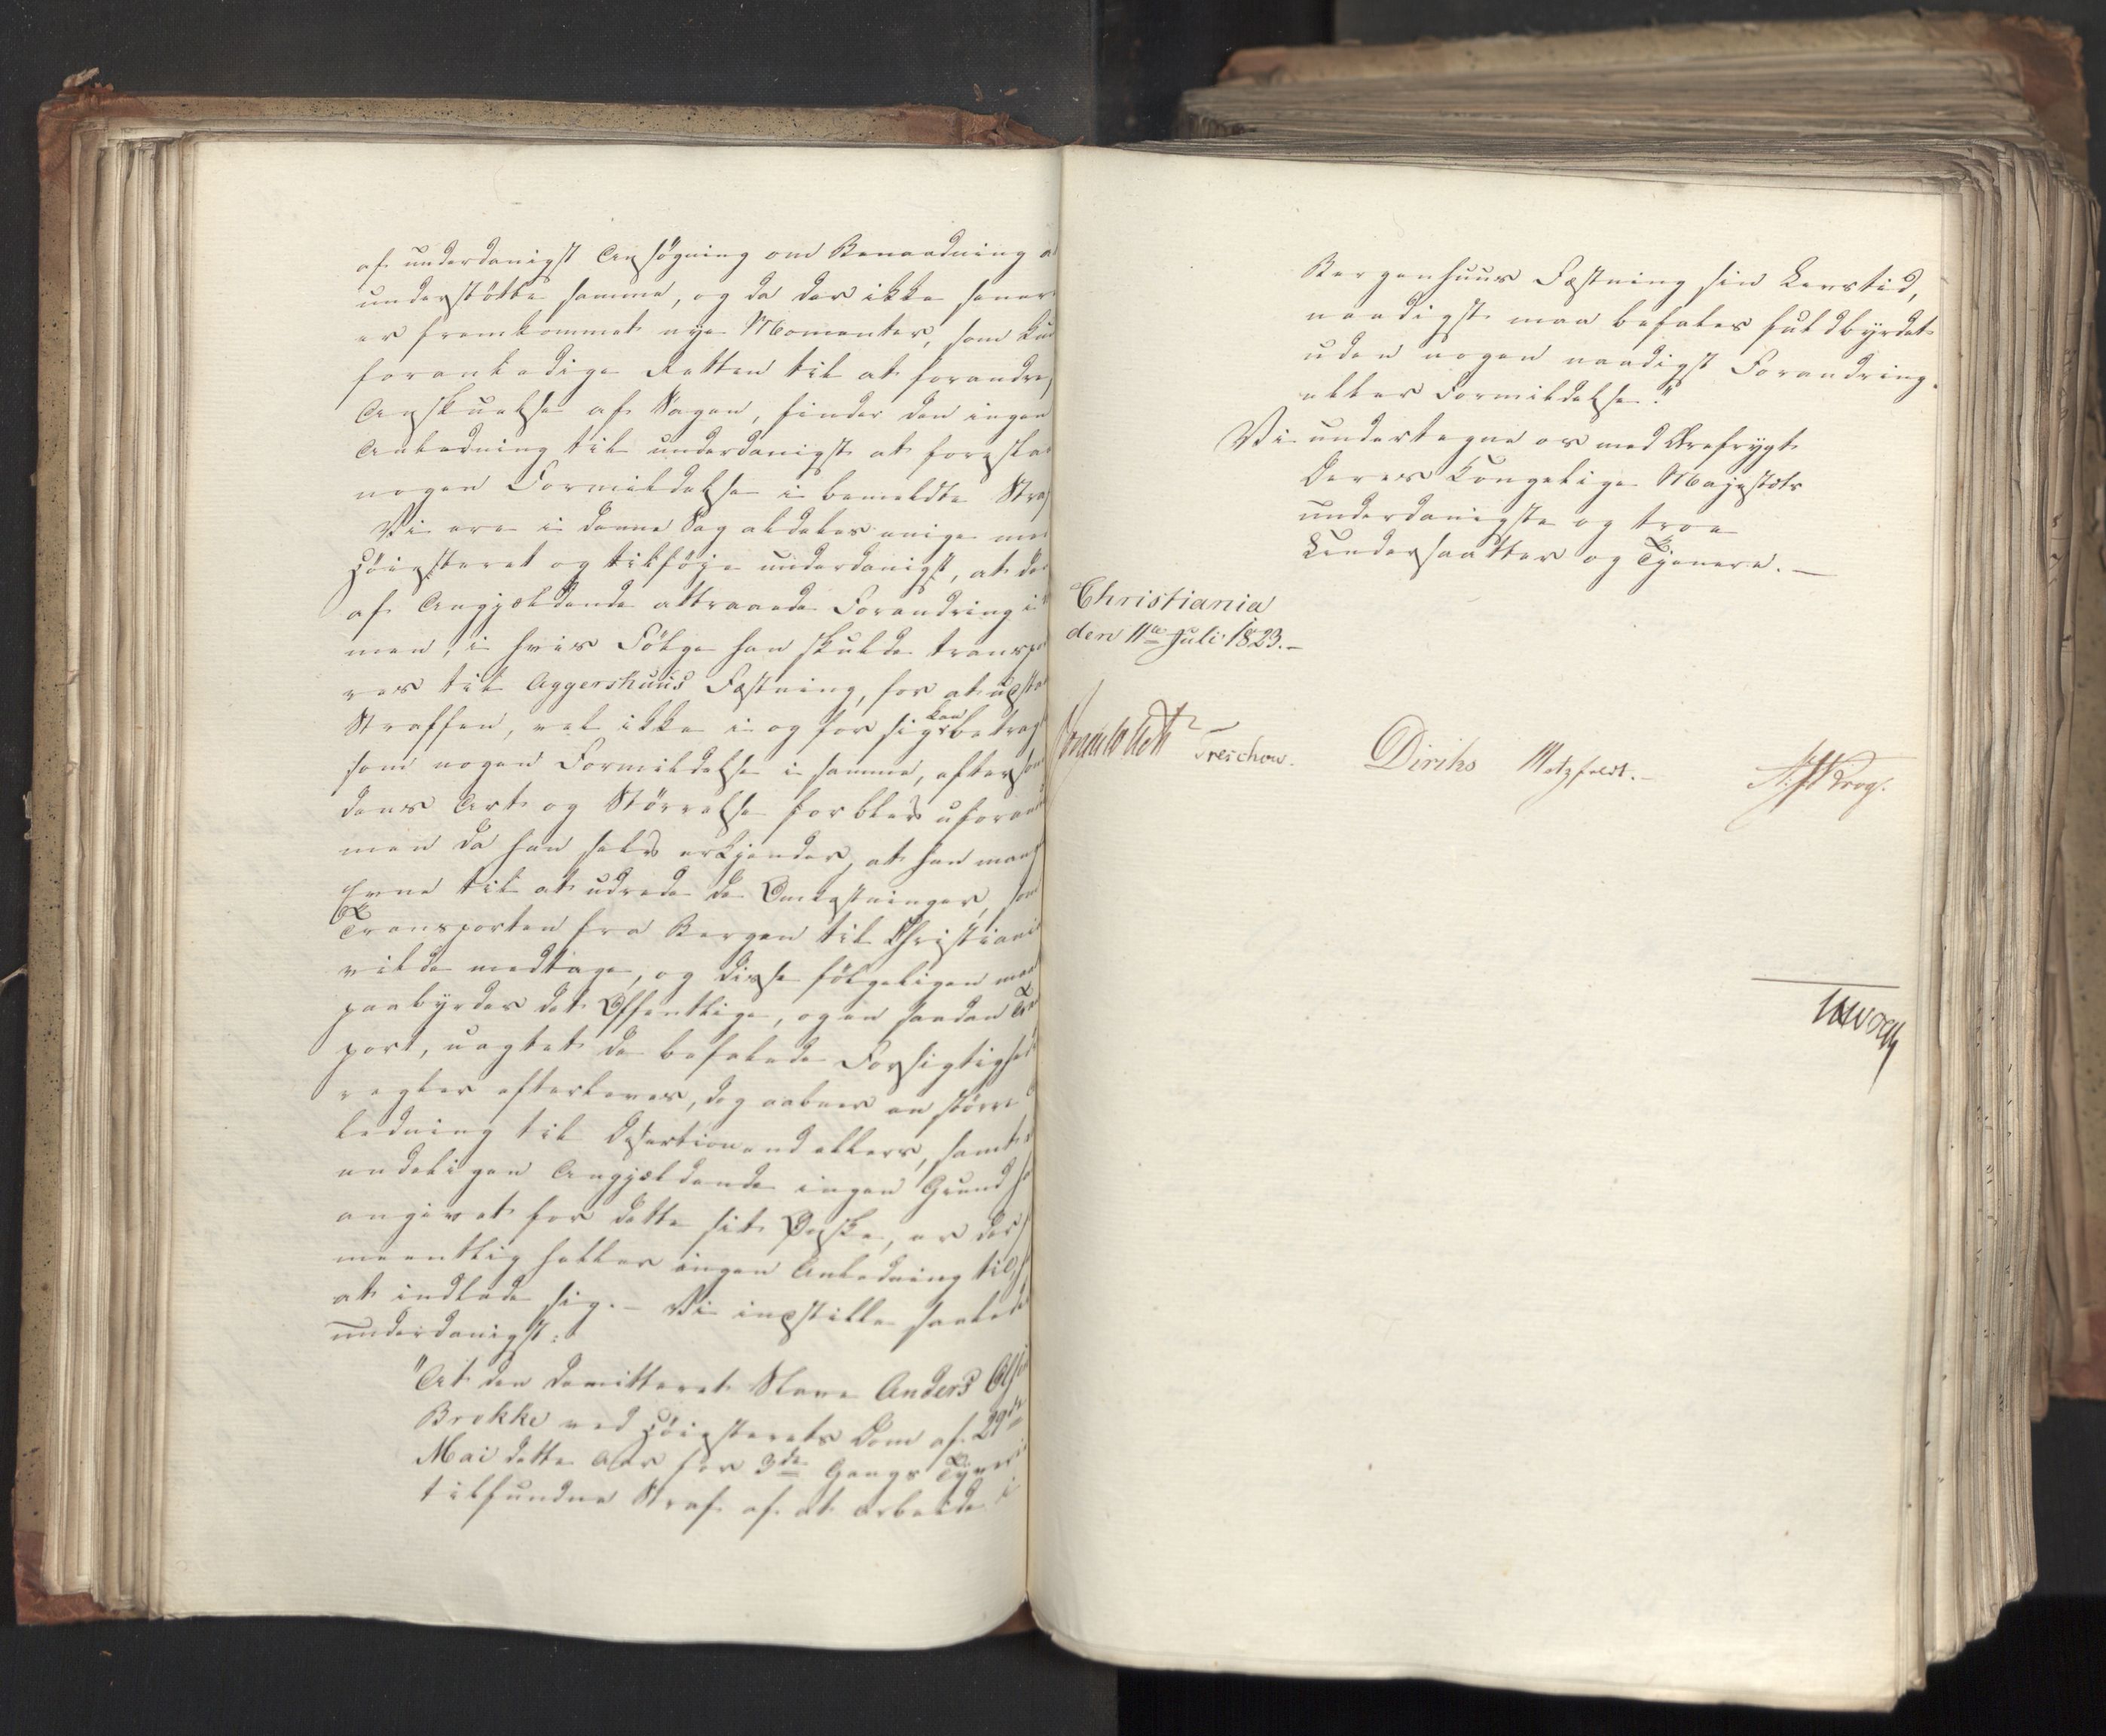 af underdanigst Ansøgning om Benaadning a
understøtte samme, og da der ikke sener
er fremkommet nye Momenter, som kun
foranledige Retten til at forandre
Anskuelse af Sagen, finder den ingen
Anledning til underdanigst at foreslaae
nogen Formildelse i bemeldte Straf
Vi ere i denne Sag aldeles enige med
Høiesteret og tilføie underdanigst, at den
af Angjældende attraaede Forandring i
men, i hvis Følge han skulde transpo
res til Aggershuus Fæstning, for at udstaae
Straffen, vel ikke i og for sig kan betrag
som nogen Formildelse i samme, eftersom
dens Art og Størrelse forblev uforand
men da han selv erkjender, at han mang
Evne til at udrede de Omkostninger, som
Transporten fra Bergen til Christiania
vilde medtage, og disse følgeligen maa
paabyrdes det Offentlige, og en saadan Trans
port, uagtet de befalede Forsigtigheds
regler efterleves, dog aabner en større
ledning til Desertion end ellers, samt
endeligen Angjældende ingen Grund ha
angivet for dette sit Ønske, er der
meentlig heller ingen Anledning til
at indlade sig. - Vi indstille saaledes
underdanigst:
"At den demitteret Slave Anders Olsen
Brekke ved Høiesterets Dom af 29de
Mai dette Aar for 3de Gangs Tyverie
tilfundne Straf af at arbeide i
Bergenhuus Fæstning sin Levetid,
naadigst maa befales fuldbyrdet
uden nogen naadigst Forandring
eller Formildelse."
Vi undertegne os med Ærefrygt
Deres Kongelige Majestæts
underdanigste og troe
Undersaatter og Tjenere. -
Christiania
den 11te Juli 1823. -
Sommerhielm Treschow. Diriks Motzfeldt. - Krog.